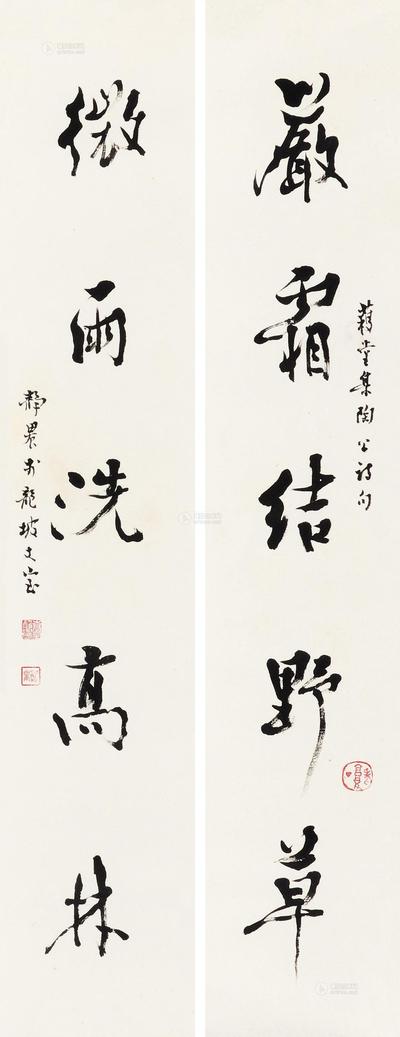 嚴霜結野草
蘓堂集陶公詩句
微雨洗高林
靜農於龍坡丈室